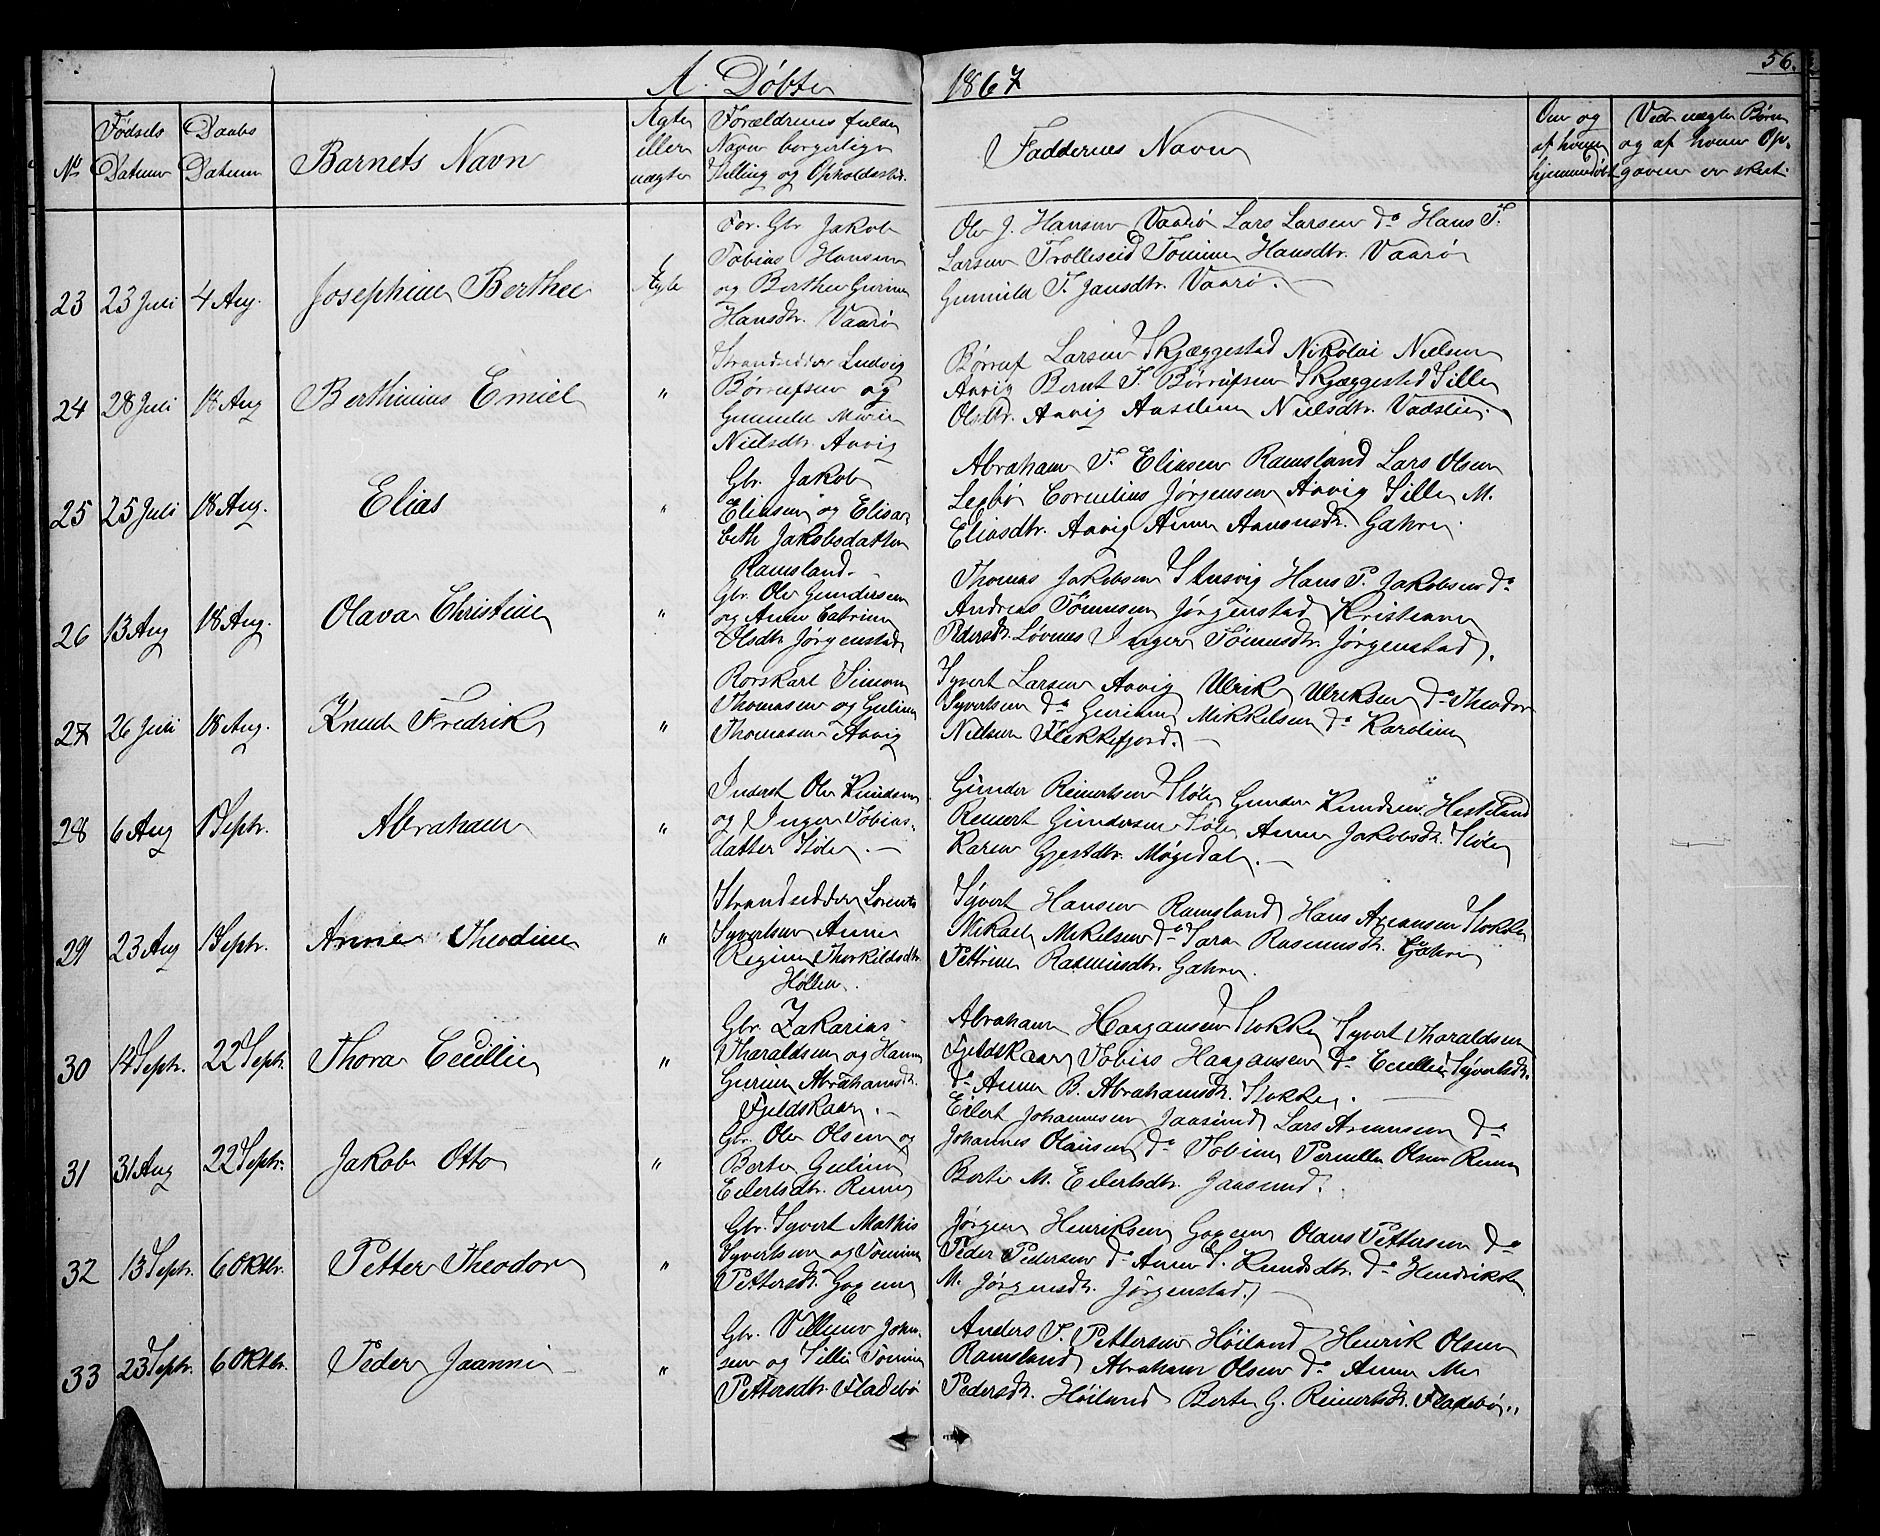 A. Døbte 1867
56.
No
Fødsels Datum
Daabs Datum
Barnets Navn
Ægte eller uægte
Forældrenes fulde Navn borgerlige Stilling og Opholdssted.
Faddernes Navne
Om og af hvem hjemmedøbt
Ved uægte Børn og af hvem Opgaven er skeet.
23 23 Juli 4 Aug. Josephine Berthee Ægte
For. Gbr. Jakob
Tobias Hansen
og Berthe Gurine
Hansdtr. Vaarø
Ole J. Hansen Vaarø Lars Larsen do Hans T.
Larsen Trolleseid Tomine Hansdtr. Vaarø
Gunnild T. Jansdtr. Vaarø.
24 28 Juli 18 Aug Berthinius Emiel "
Strandsidder Ludvig
Børrufsen og
Gunnild Marie
Nielsdtr. Aavig
Børruf Larsen Skjæggestad Nikolai Nielsen
Aavig Bernt T. Børrufsen Skjæggestad Sille
Olsdtr. Aavig Aaseline Nielsdtr. Vadslie.
25 25 Juli 18 Aug. Elias "
Gbr. Jakob
Eliasen og Elisa-
beth Jakobsdatter
Ramsland.
Abraham T. Eliasen Ramsland Lars Olsen
Legbø Cornelius Jørgensen Aavig Sille M.
Eliasdtr. Aavig Anne Aanensdtr. Gahre.
26 13 Aug 18 Aug. Olava Christine "
Gbr. Ole Gundersen
og Anne Catrine
Olsdtr Jørgenstad
Thomas Jakobsen Stusvig Hans P. Jakobsen do
Andreas Tønnesen Jørgenstad Kristiane
Pedersdtr. Løvnes Inger Tønnesdtr. Jørgenstad.
27 26 Juli 18 Aug. Knud Fredrik "
Rorskarl Simon
Thomasen og Guline
Thomasen Aavig
Syvert Larsen Aavig Ulrik Ulriksen do Theodor
Syvertsen do Gurine Mikkelsen do Karoline
Nielsen Flekkefjord.
28 6 Aug 1 Septr. Abraham "
Inderst Ole Knudsen
og Inger Tobias-
datter Støle.
Gunder Reinertsen Støle Gunder Knudsen Hesteland
Reinert Gundersen Støle Anne Jakobsdtr. Støle
Karen Gjestdtr. Møgedal.
29 23 Aug 1 Septr. Anne Theodine "
Strandsidder Lorents
Syvertsen Anne
Regine Thorkildsdtr.
Høllen.
Syvert Hansen Ramsland Hans Aanensen Stokke
Mikael Mikelsen do Sara Rasmusdtr. Gahre
Pettrine Rasmusdtr. Gahre.
30 14 Septr. 22 Septr. Thora Cecillie "
Gbr. Zakarias
Tharaldsen og Hanne
Gurine Abrahamsdtr.
Fjeldskaar.
Abraham Haagansen Stokke Syvert Tharaldsen
Fjeldskaar Tobias Haagansen do Cecillie Syvertsdtr.
do Anne B. Abrahamsdtr. Stokke.
31 31 Aug 22 Septr. Jakob Otto "
Gbr. Ole Olsen og
Berte Guline
Eilertsdtr. Renne
Eilert Johannesen Jaasund Lars Aanensen do
Johannes Olausen do Tobine Pernille Olsen Renne
Berte M. Eilertsdtr. Jaasund.
32 13 Septr. 6 Oktbr. Petter Theodor "
Gbr. Syvert Mathis
Syvertsen og Tomine
Pettersdtr.
Jørgen Henriksen Olaus Pettersen do
Peder Pedersen do Anne S. Knudsdtr. do Hendrikke
M. Jørgensdtr. Jørgenstad.
33 23 Septr. 6 Oktbr. Peder Jaanni "
Gbr. Villum John-
sen og Silli Tomine
Pettersdtr. Fladebø
Anders T. Pettersen Høiland Henrik Olsen
Ramsland Abraham Olsen do Anne Me
Pedersdtr. Høiland Berte G. Reinertsdtr. Fladebø.